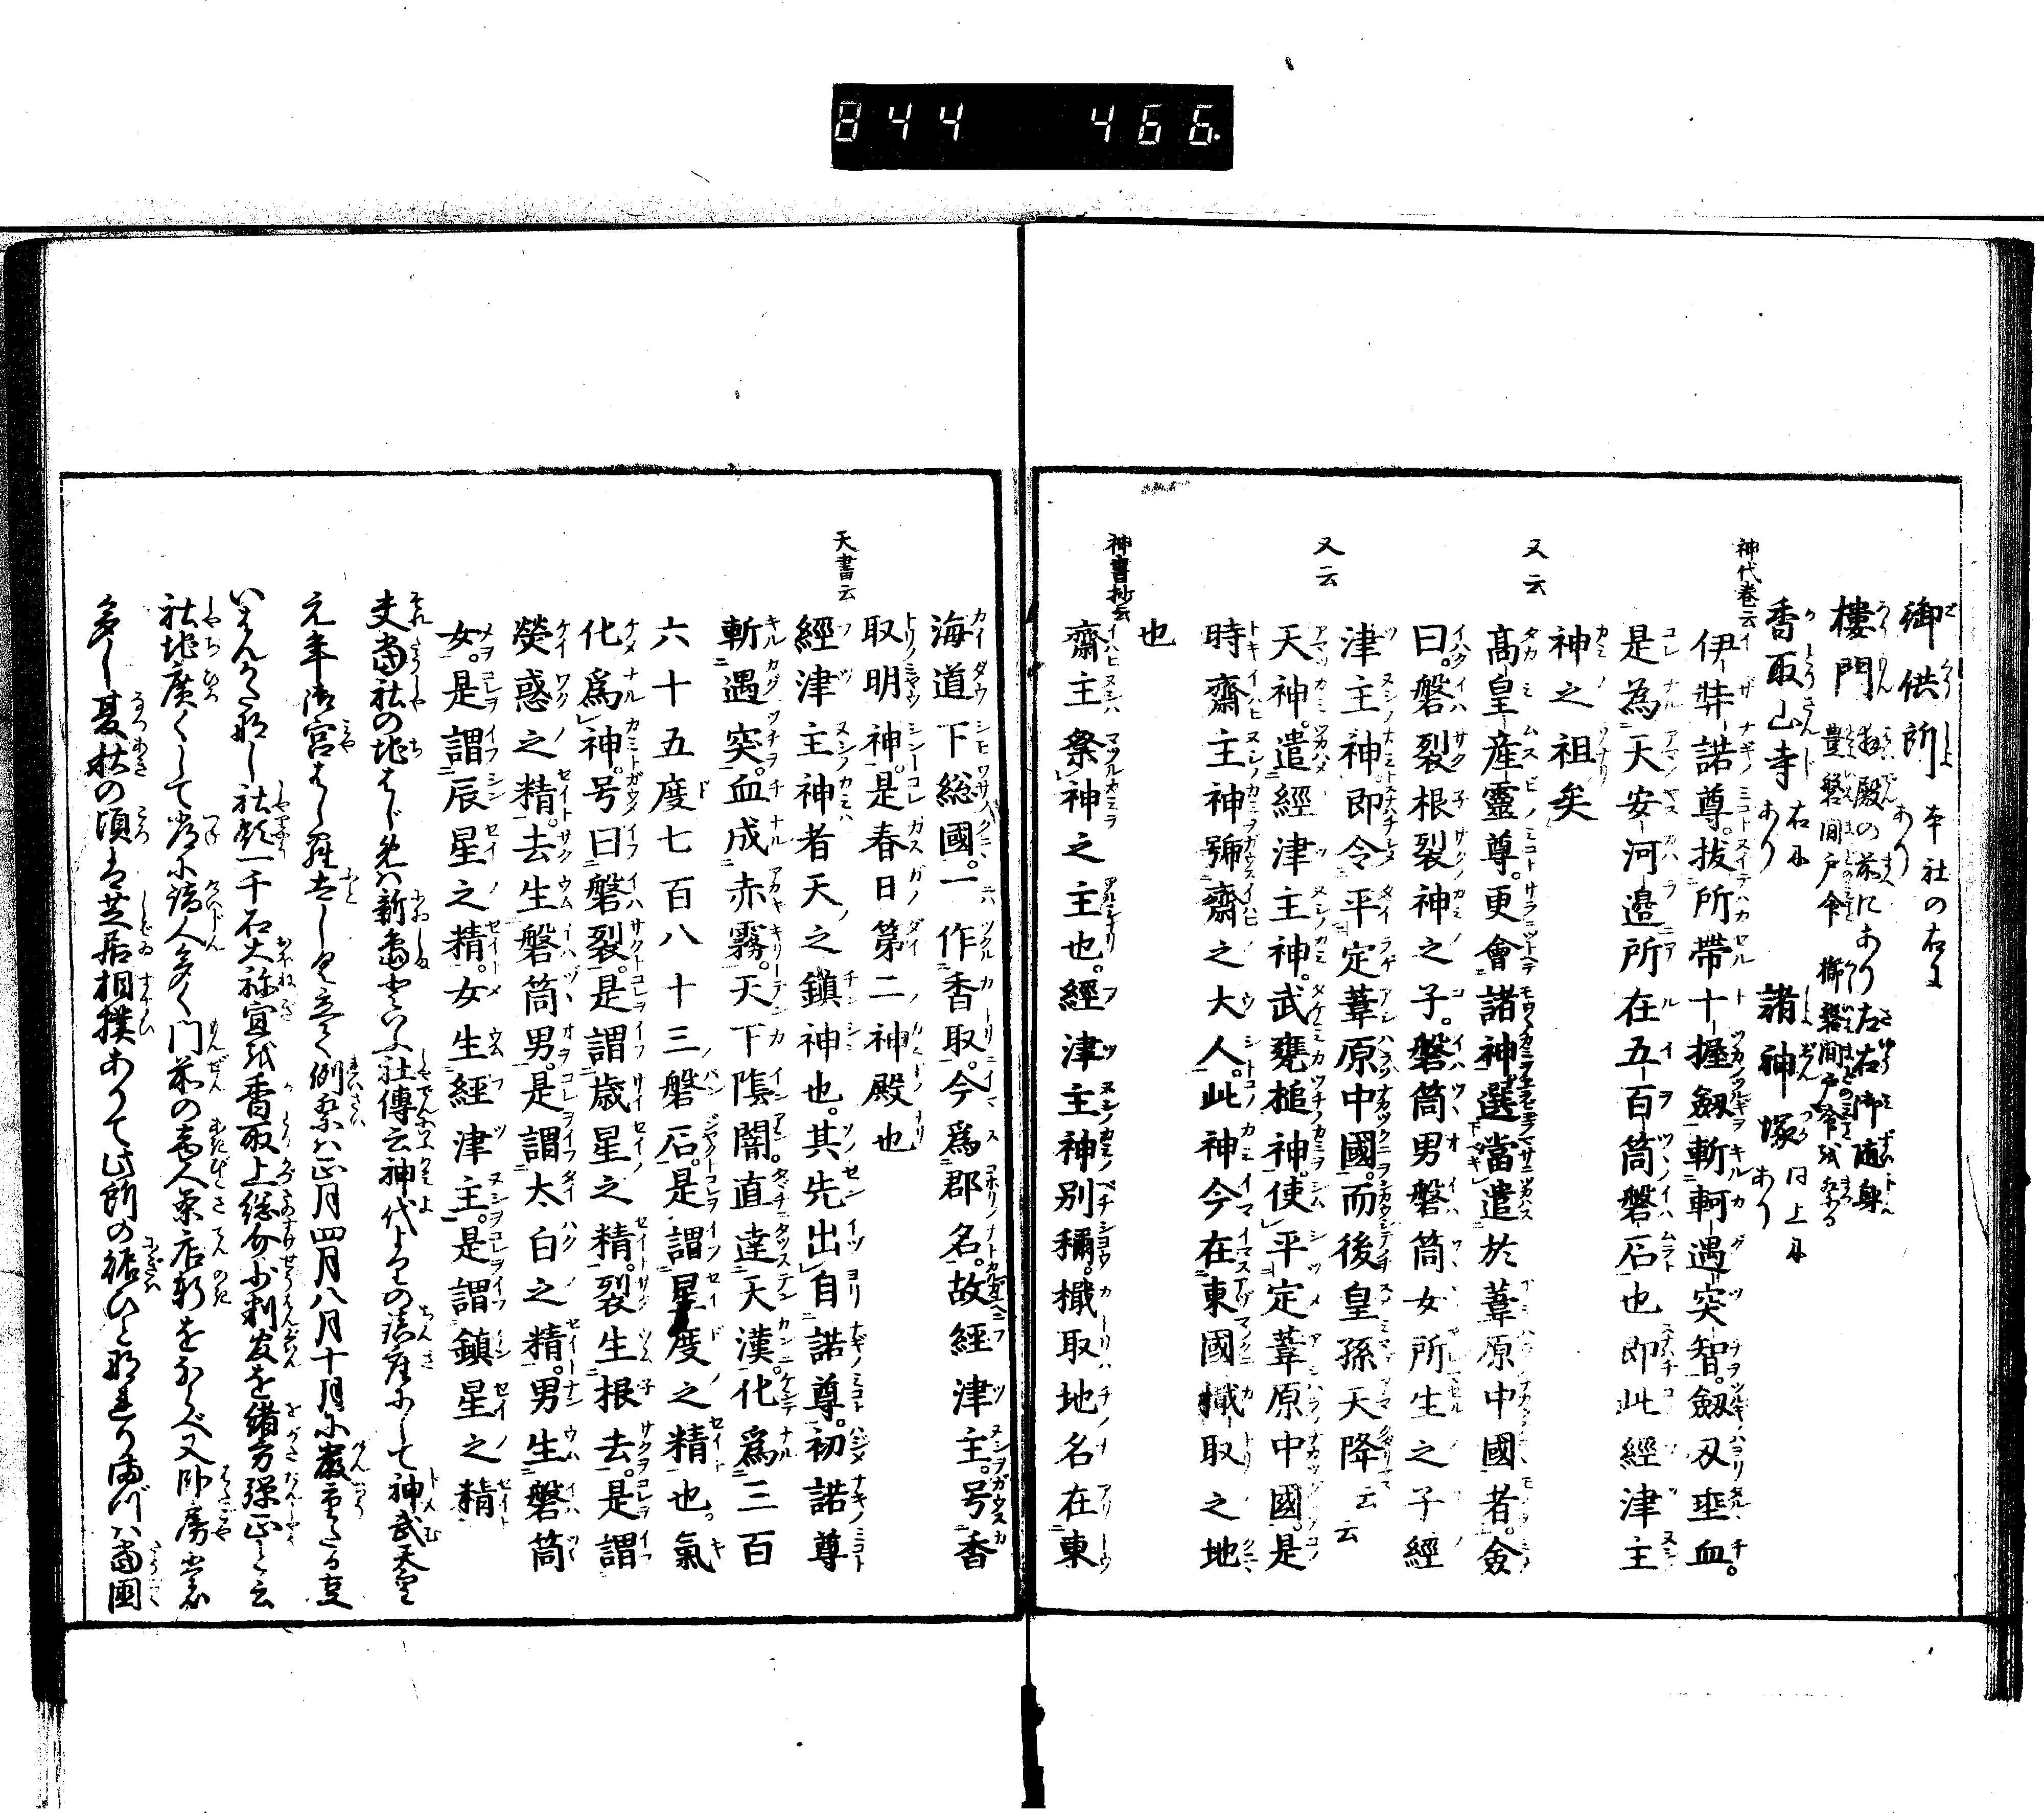 844 466
御供所 本社の右にあり
樓門 拜殿の前にあり左右御随身
豊磐間戸命 櫛磐間戸命を安ずる
香取山寺 右にあり 諸神塚 同上にあり
神代巻云
伊弉諾尊。拔所帶十握劔斬軻遇突智。劔刄垂血。
是為天安河邉所在五百筒磐石也即此經津主
神之祖矣
又云
髙皇産靈尊。更會諸神。選當遣於葦原中國者。僉
曰。磐裂根裂神之子。磐筒男磐筒女所生之子經
津主神。即令平定葦原中國。而後皇孫天降云云
又云
天神。遣經津主神。武甕槌神。使平定葦原中國。是
時齋主神號齋之大人。此神今在東國檝取之地
也
神書抄云
齋主祭神之主也。經津主神別稱。檝取地名在東
海道下総國。一作香取。今為郡名。故經津主。号香
取明神。是春日第二神殿也
天書云
經津主神者天之鎮神也。其先出自諾尊。初諾尊
斬遇突。血成赤霧。天下陰闇。直達天漢。化為三百
六十五度七百八十三磐石。是謂星度之精也。氣
化為神。号曰磐裂。是謂歳星之精。裂生根去。是謂
熒惑之精。去生磐筒男。是謂太白之精。男生磐筒
女。是謂辰星之精。女生經津主。是謂鎮星之精
夫當社の地をバ新嶋といふ社傳云神代よりの鎮座にして神武天皇
元年宮をしき立て例祭ハ正月四月八月十月に嚴重なる事
いはんかたなし社領一千石大祢宜を香取上総介少判官を緒方弾正と云
社地廣くして常に詣人多く門前の賣人茶店軒をならべ又
多し夏秋の頃ハ芝居相撲ありて此所の賑ひとなれりハ當國